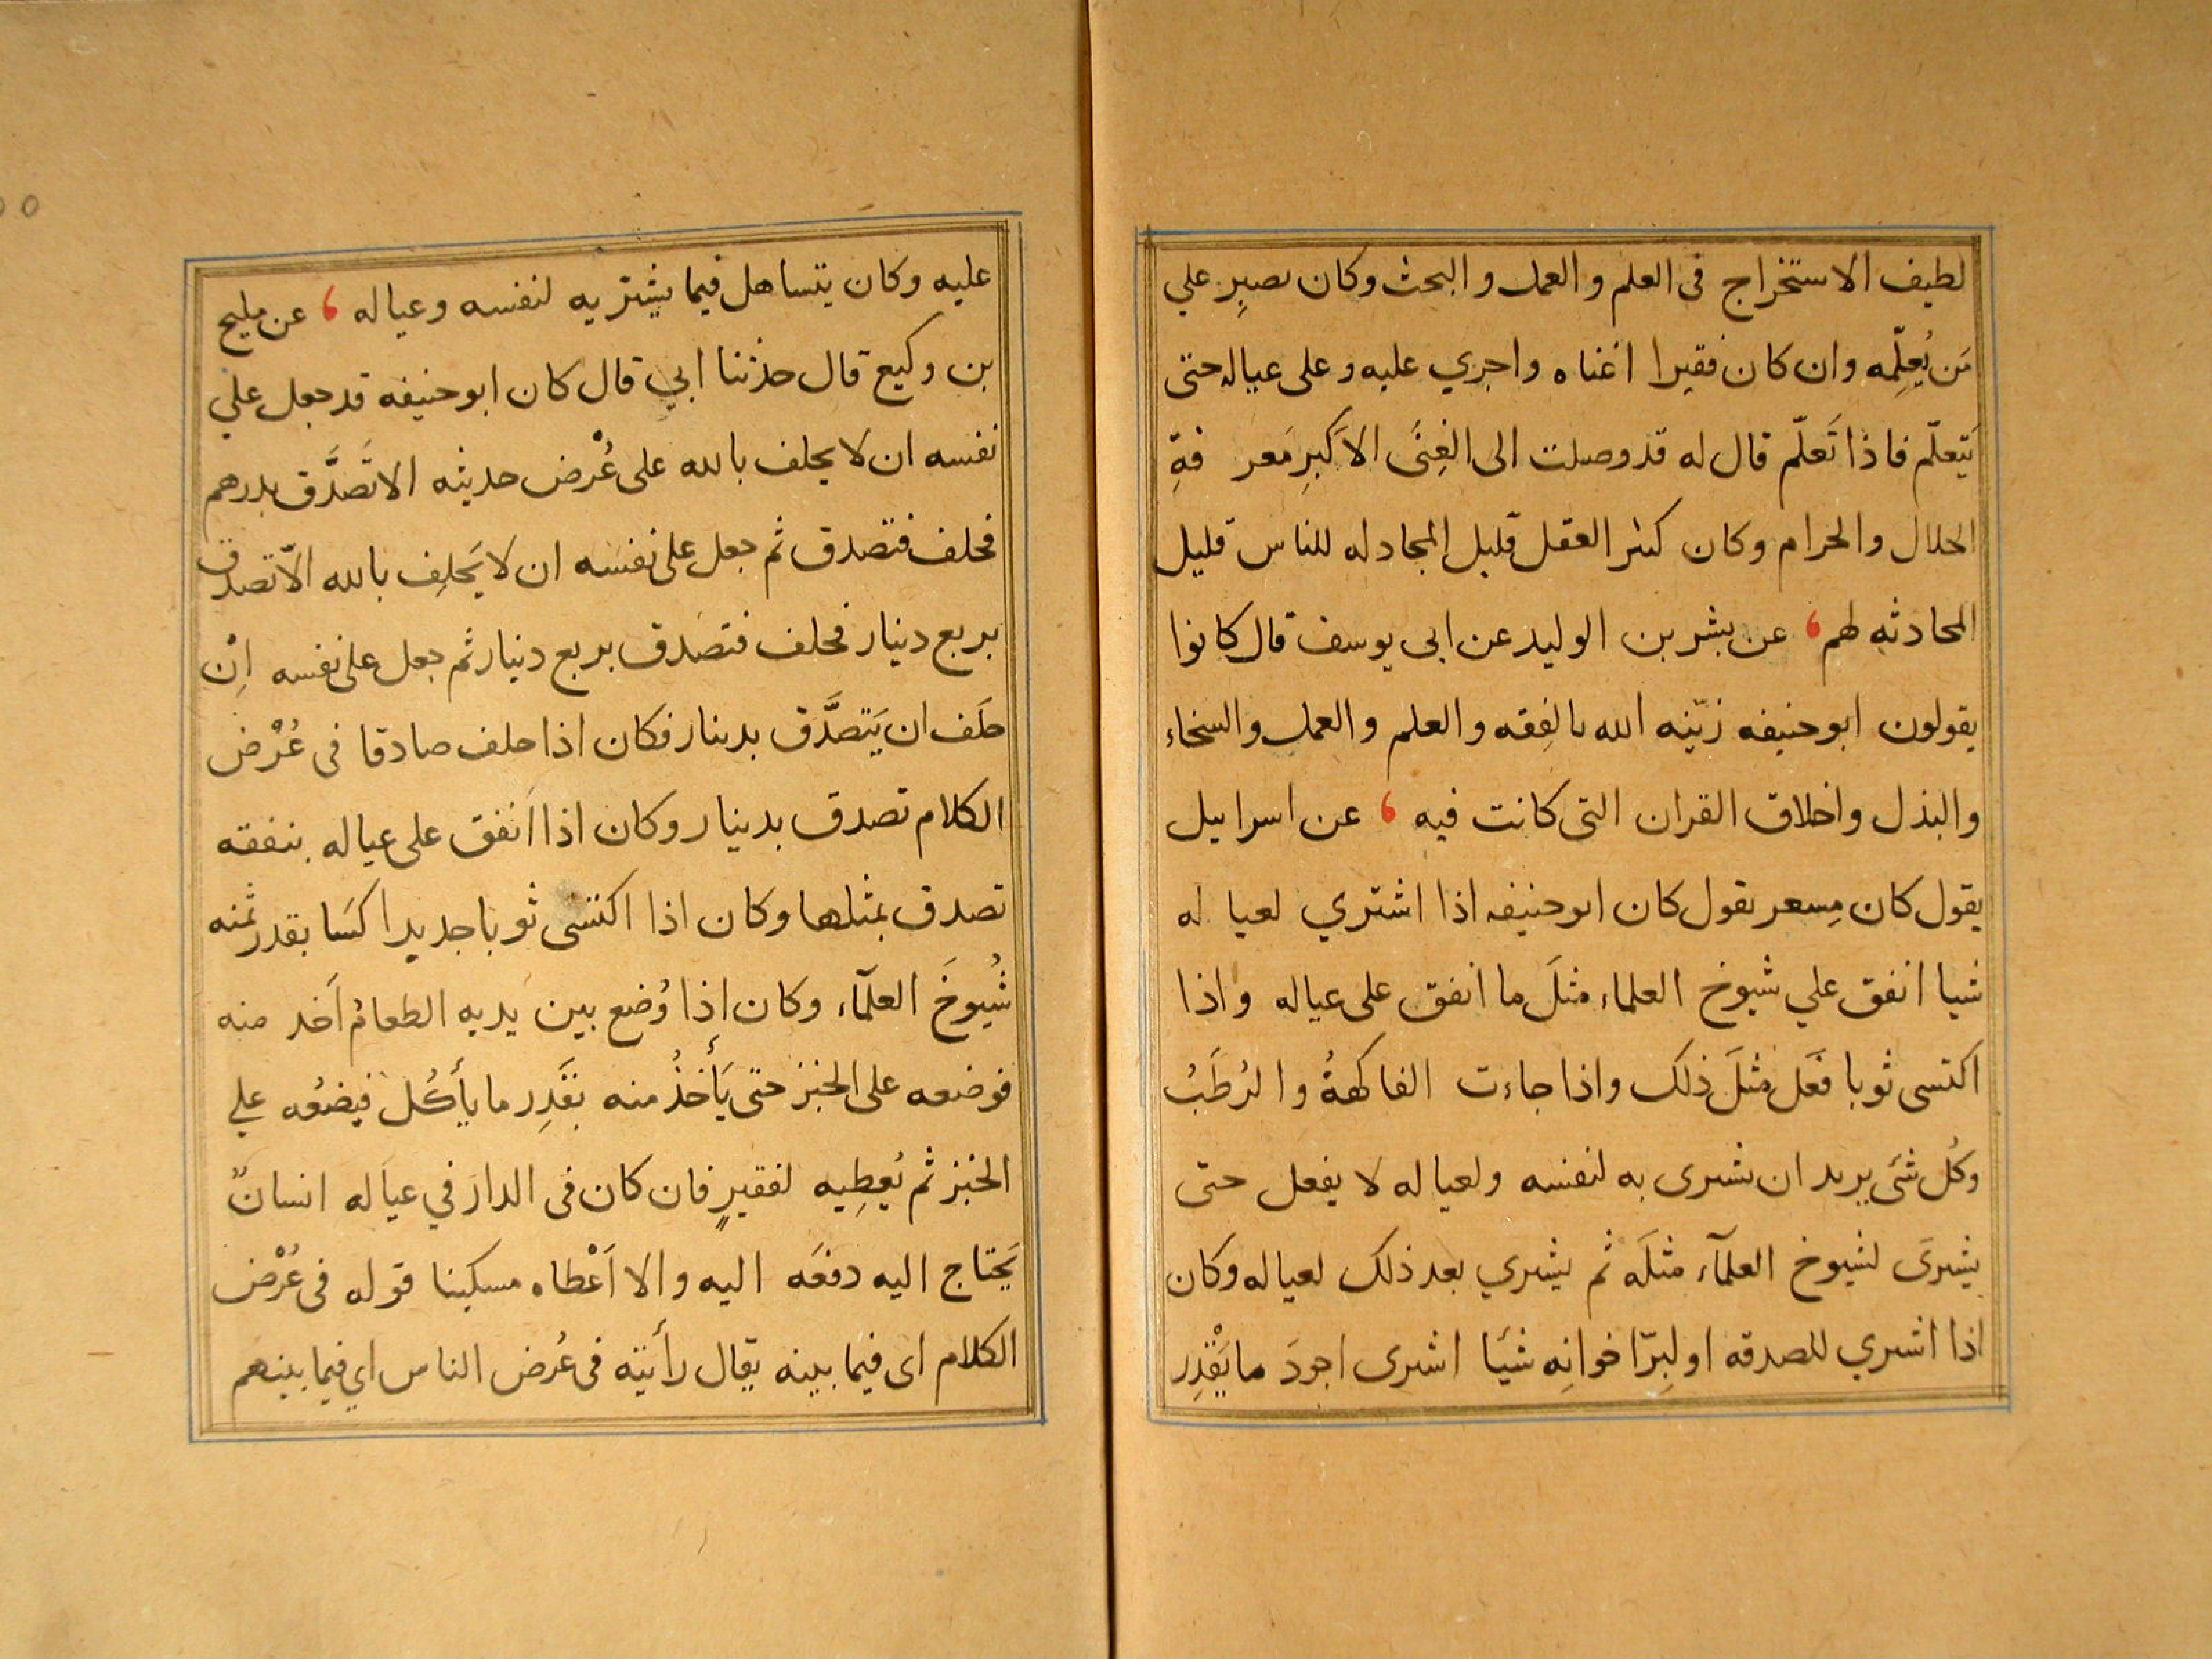 لطيف الاستخراج فى العلم والعمل والبحث وكان يصبِر علي
مَن يُعلِّمه وان كان فقيرا اغناه واجري عليه وعلى عياله حتى
يَتعلّم فاذا تَعلّم قال له قد وصلت الى الغِنَى الاَكبرِ مَعرفةِ
الحلال والحرام وكان كثير العقل قليل المجادله للناس قليل
المحادثه لهم عن بشر بن الوليد عن ابى يوسف قال كانوا
يقولون ابو حنيفه زيّنه الله بالفِقه والعلم والعمل والسخاء
والبذل واخلاق القران التى كانت فيه عن اسراييل
يقول كان مِسعر يقول كان ابو حنيفه اذا اشتري لعياله
شيا انفق علي شيوخ العلماء مثلَ ما انفق على عياله واذا
اكتسى ثوبا فَعَل مثلَ ذلك واذا جاءت الفاكهةُ والرُطَبُ
وكُل شئ يريد ان يشترى به لنفسه ولعياله لا يفعل حتى
يشترىَ لشيوخ العلمآء مثلَه ثم يشتري بعد ذلك لعياله وكان
اذا اشتري للصدقه او لِبرّ اخوانِه شئَا اشترى اجودَ ما يَقْدِر
عليه وكان يتساهل فيما يشتريه لنفسه وعياله عن مليح
بن وكيع قال حدثنا ابي قال كان ابو حنيفه قد جعل علي
نفسه ان لا يحلف بالله على عُرْض حديثه الا تَصَدَّق بدرهم
فحلف فتصدق ثم جعل على نفسه ان لا يَحلِف بالله الاّ تصدق
بربع دينار فحلف فتصدق بربع دنيار ثم جعل على نفسه اِنْ
حَلَف ان يَتصدَّق بدينار فكان اذا حلف صادقا فى عُرْض
الكلام تصدق بدينار وكان اذا اَنفق على عياله بنفقه
تصدق بمثلها وكان اذا اكتسى ثوبا جديدا كسَا بقدر ثمنه
شُيوخَ العلمآء وكان إذا وُضع بين يديه الطعام اَخذ منه
فوضعه على الخبز حتى يَأخذُ منه بقَدِر ما يأكُل فيضعُه علي
الخبز ثم يُعطِيه لفقيرٍ فان كان فى الدار في عياله انسانٌ
يَحتاج اليه دفعَه اليه والا اَعْطاه مسكينا قوله فى عُرْض
الكلام اى فيما بينه يقال رأيته فى عُرض الناس اي فيما بينهم